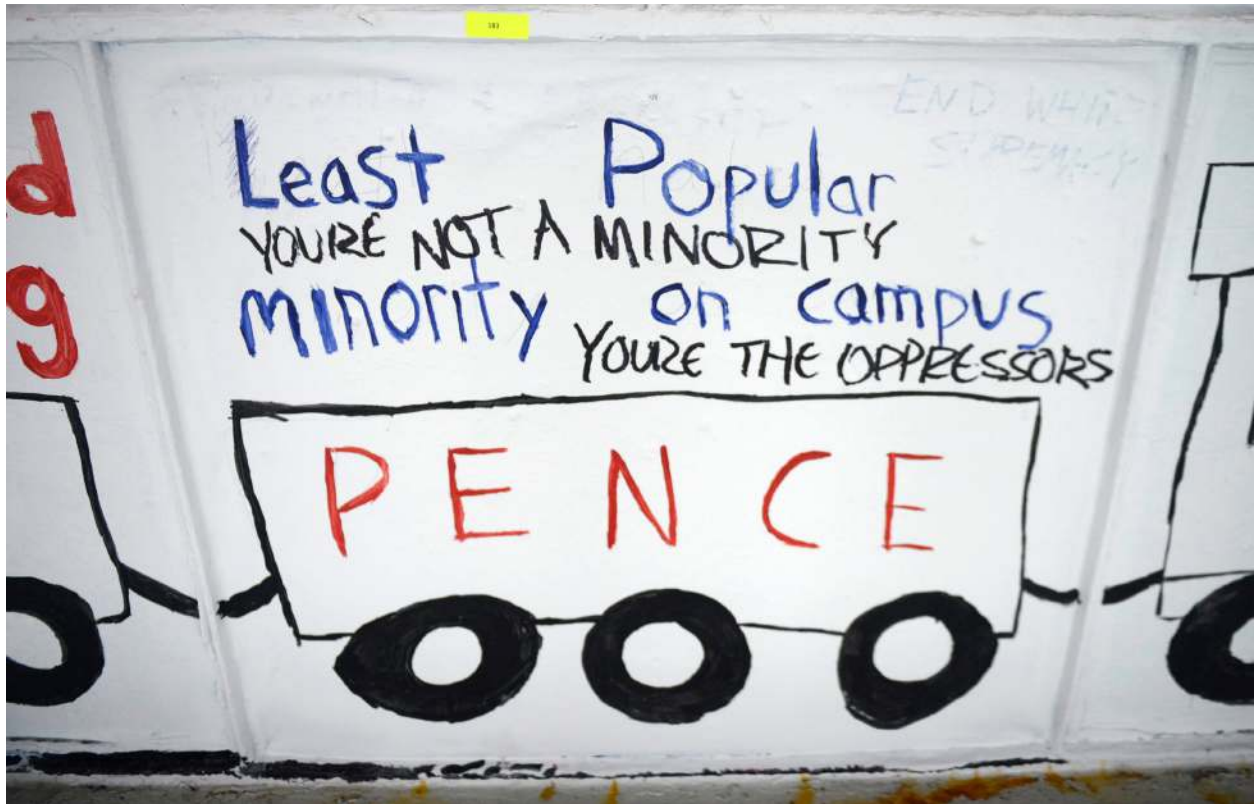 183
END WHITE
SUPREMACY
d
Least Popular
YOURE NOT A MINORITY
g
minority on campus
YOURE THE OPPRESSORS
PENCE